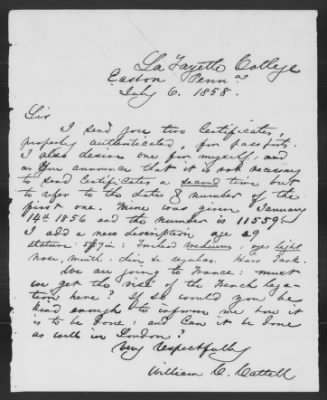 La Fayette College
Easton Penna
July 6. 1858.
Sir
I send you two Certificates,
properly authenticated, for passports.
I also desire one for myself; and
as you announce that it is not necessary
to send Certificates a second time but
to refer to the date & number of the
first one. Mine was given January
14th 1856 and the number is 11559.
I add a new description age 29
stature 5ft 7in: forehead medium; eyes light
nose, mouth: chin so regular. Hair Dark.
We are going to France: must
we get the visé of the French lega-
tion here? If so would you be
kind enough to inform me how it
is to be done: and can it be done
as well in London?
Very respectfully
William C. Cattell